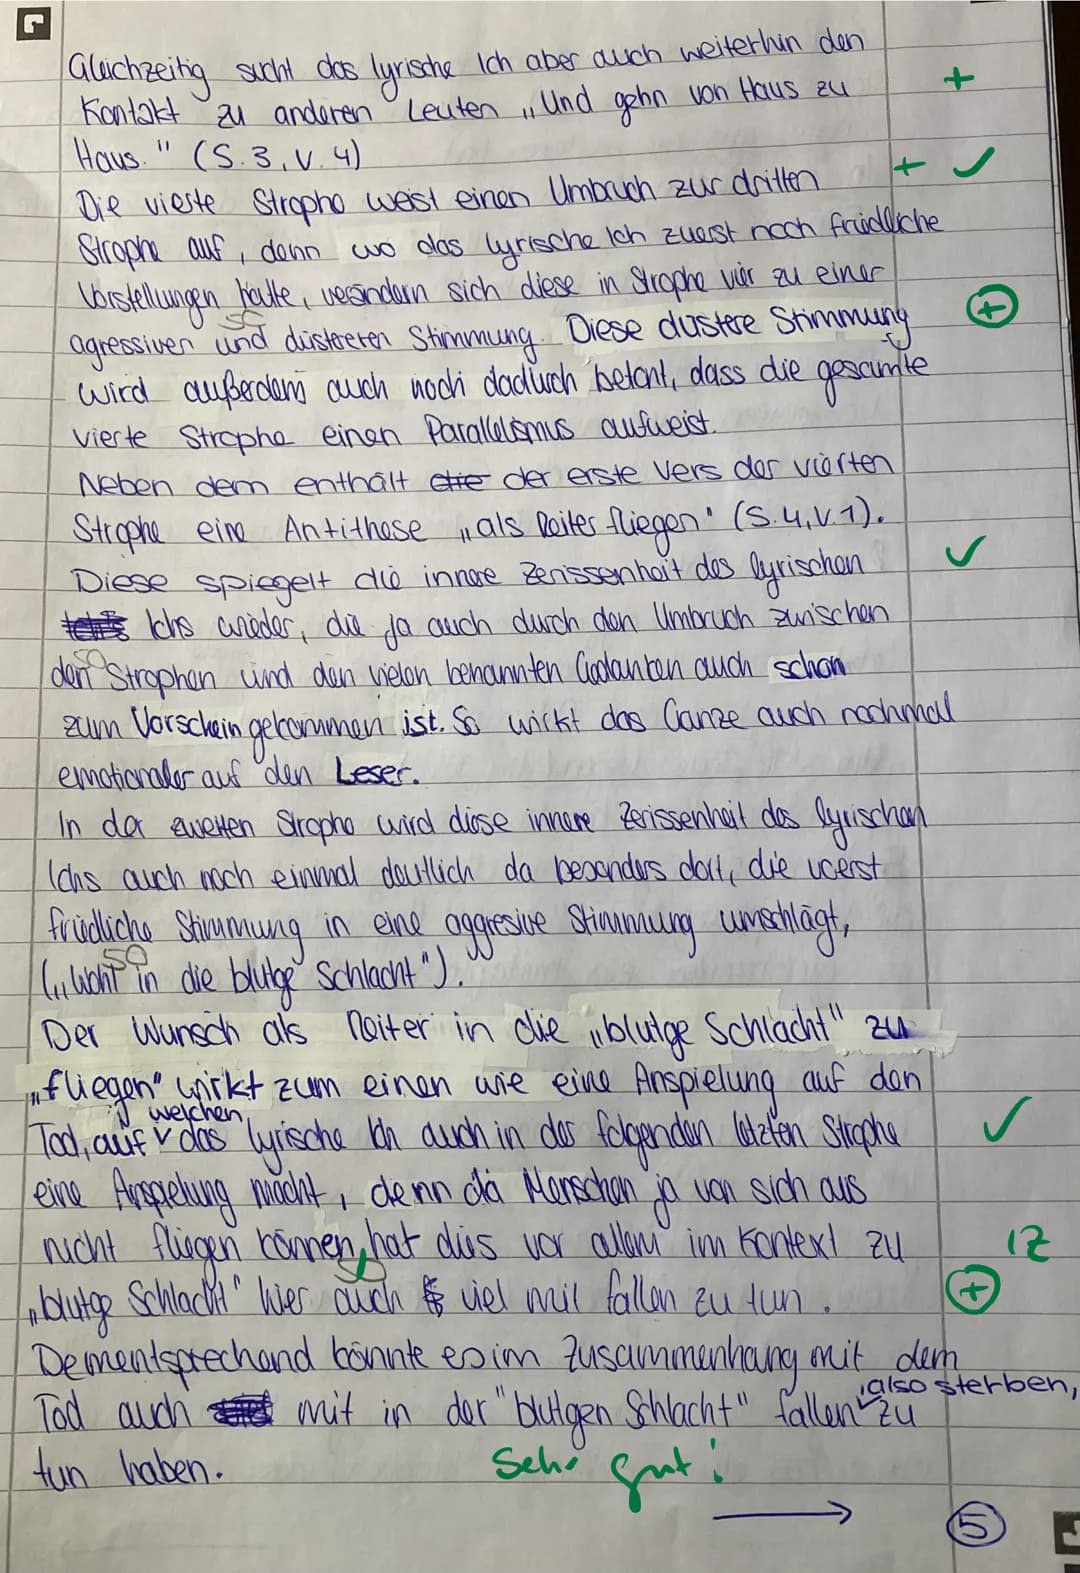 Gleichzeitig sucht das lyrische Ich aber auch weiterhin den
Kontakt zu anderen Leuten „Und gehn von Haus zu
+
Haus." (S.3, V.4)
Die vierte Strophe weist einen Umbruch zur dritten
+ ✓
Strophe auf, denn wo das lyrische Ich zuerst noch friedliche
Vorstellungen hatte, verändern sich diese in Strophe vier zu einer
agressiven und düstereren Stimmung. Diese düstere Stimmung
+
wird außerdem auch noch dadurch betont, dass die gesamte
vierte Strophe einen Parallelismus aufweist.
Neben dem enthält die der erste Vers der vierten
Strophe eine Antithese „als Reiter fliegen" (S.4, V.1).
Diese spiegelt die innere Zerissenheit des lyrischen
✓
Ichs wieder, die ja auch durch den Umbruch zwischen
den Strophen und den vielen benannten Gedanken auch schon
zum Vorschein gekommen ist. So wirkt das Ganze auch nochmal
emotionaler auf den Leser.
In der zweiten Strophe wird diese innere Zerissenheit des lyrischen
Ichs auch noch einmal deutlich da besonders dort, die
friedliche Stimmung in eine aggresive Stimmung umschlägt,
(„Wohl in die blutge Schlacht").
Der Wunsch als Reiter in die „blutge Schlacht" zu
„fliegen" wirkt zum einen wie eine Anspielung auf den
welchen
Tod, auf das lyrische Ich auch in der folgenden letzten Strophe
✓
eine Anspielung macht, denn da Menschen ja von sich aus
nicht fliegen können, hat dies vor allem im Kontext zu
„blutge Schlacht" hier auch viel mit fallen zu tun.
+
Dementsprechend könnte es im Zusammenhang mit dem
, also sterben,
Tod auch mit in der "blutgen Schlacht" fallen zu
tun haben.
Sehr gut!
→
5